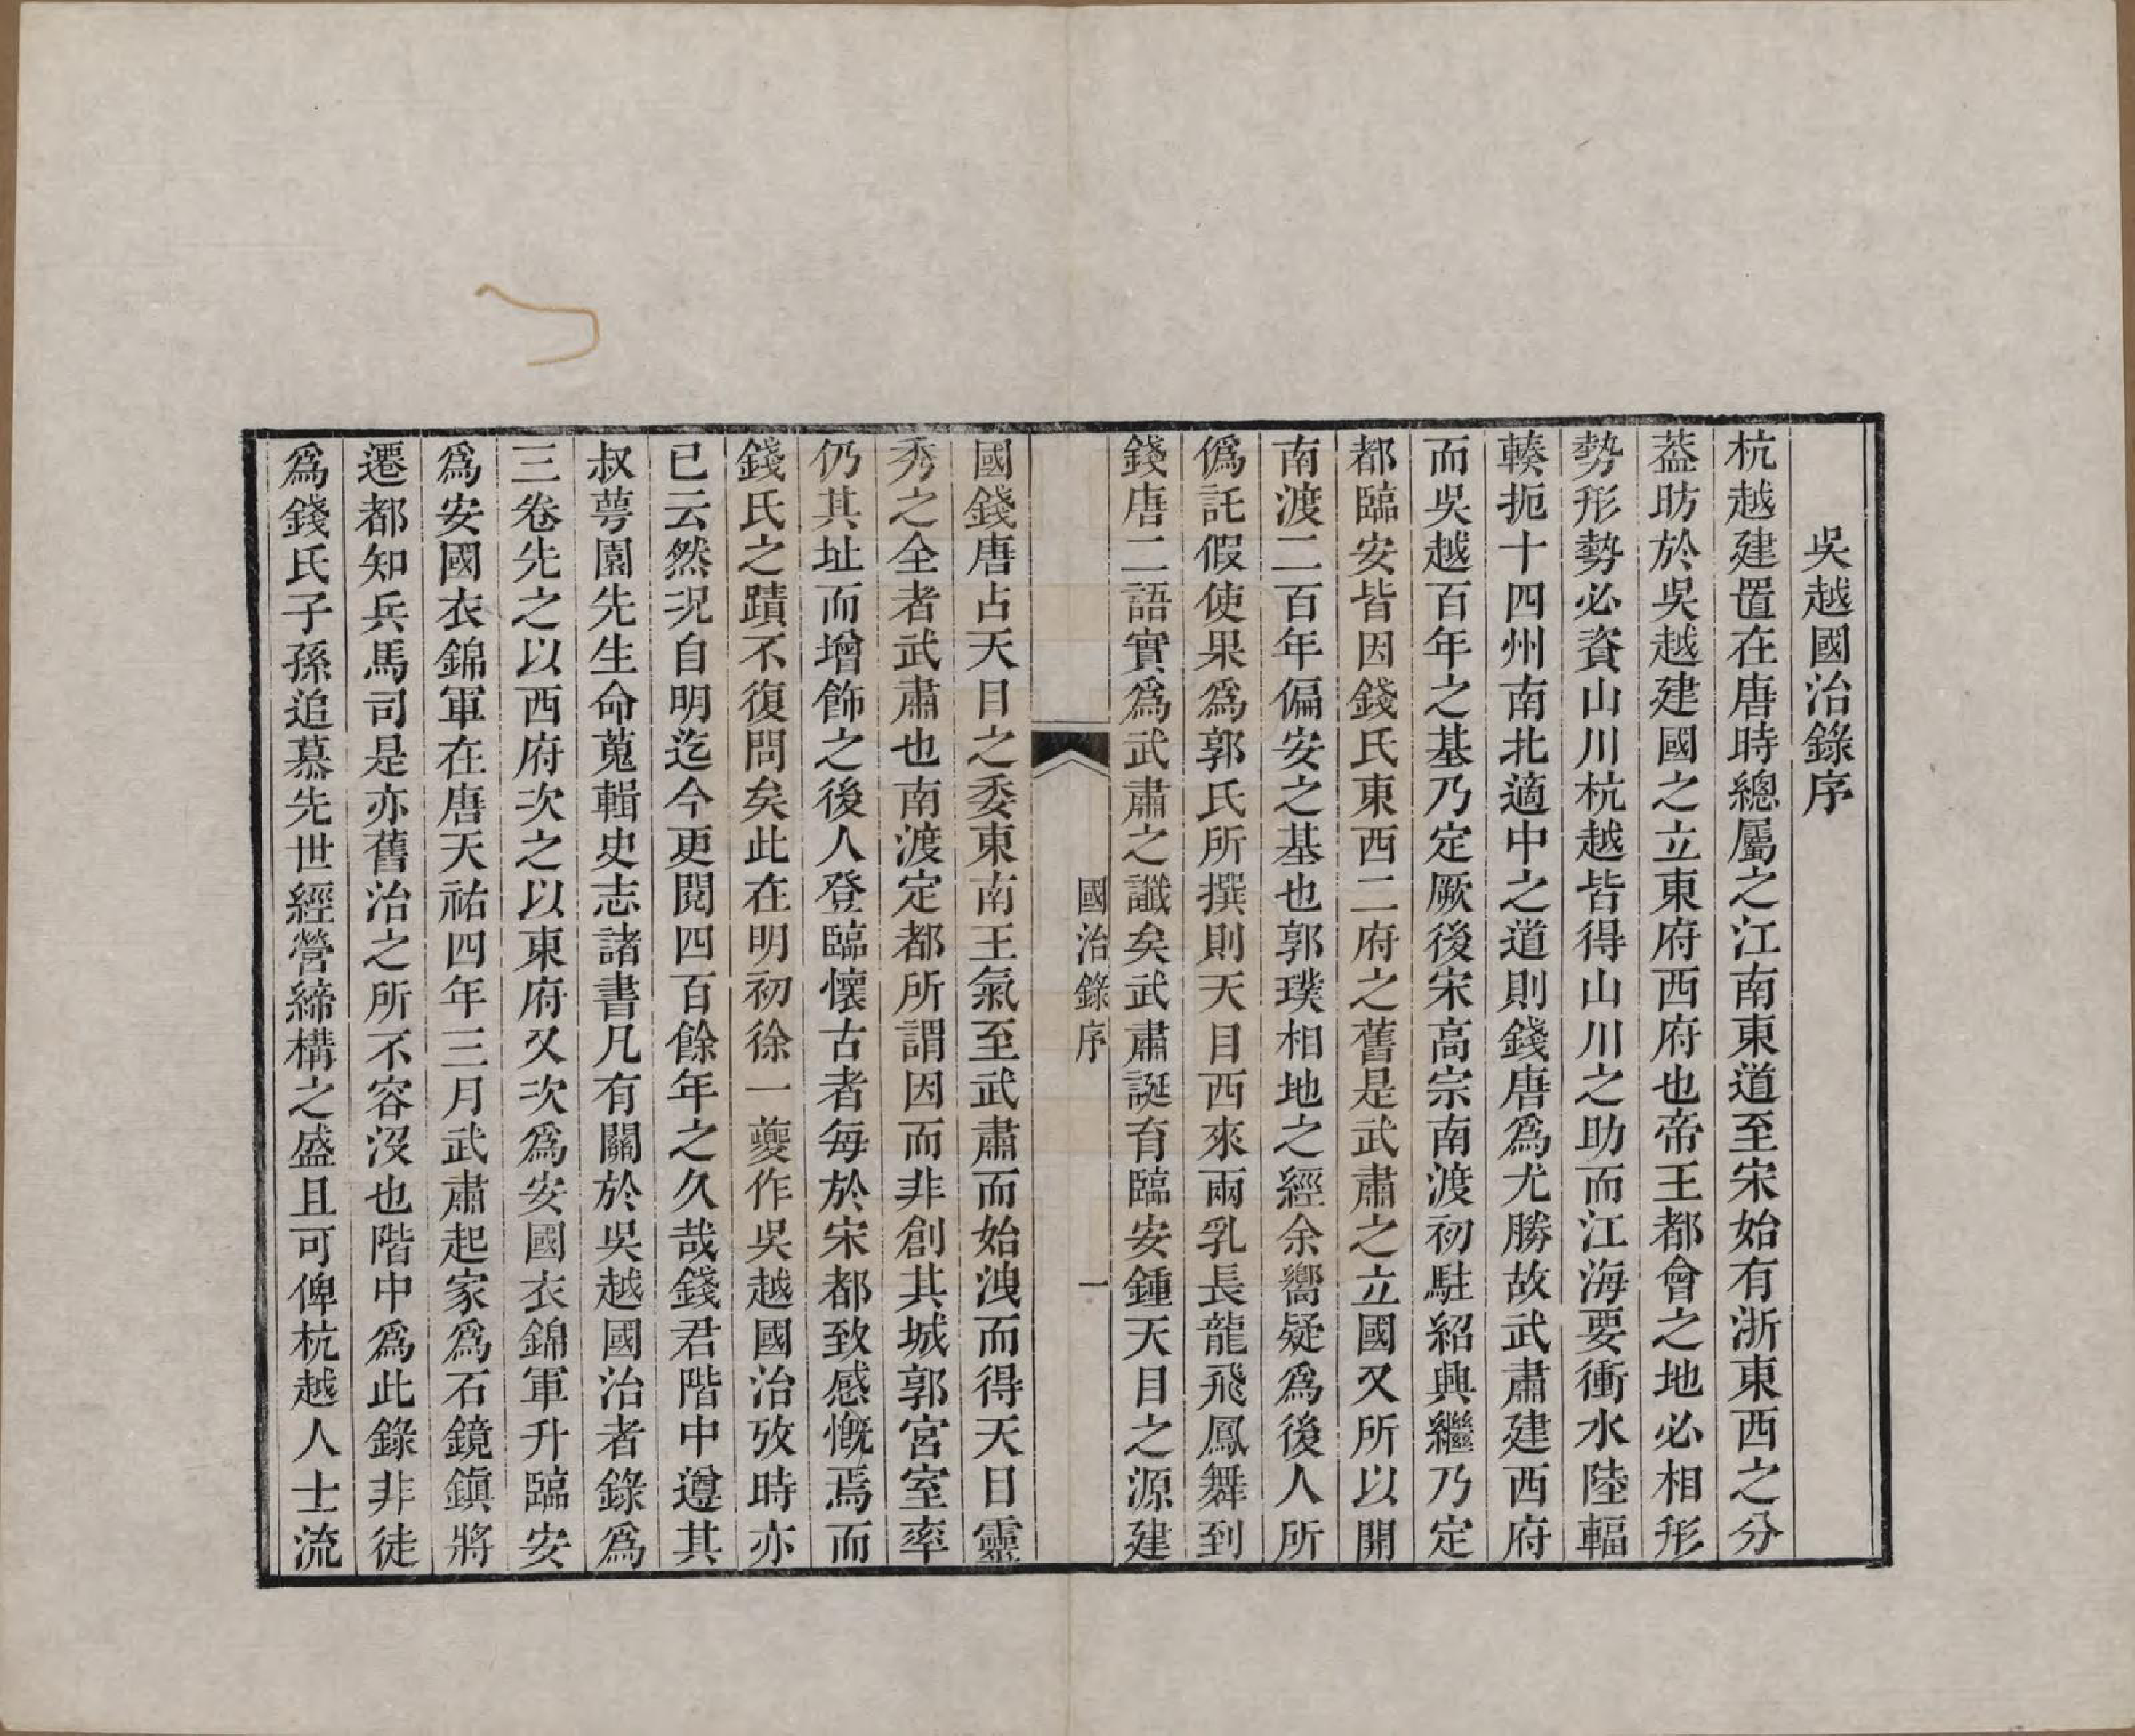 吳越國治錄序
杭越建置在唐時總屬之江南東道至宋始有浙東西之分
葢昉於吳越建國之立東府西府也帝王都會之地必相形
勢形勢必資山川杭越皆得山川之助而江海要衝水陸輻
輳扼十四州南北適中之道則錢唐爲尤勝故武肅建西府
而吳越百年之基乃定厥後宋高宗南渡初駐紹興繼乃定
都臨安皆因錢氏東西二府之舊是武肅之立國又所以開
南渡二百年偏安之基也郭璞相地之經余嚮疑爲後人所
僞託假使果爲郭氏所撰則天目西來兩乳長龍飛鳳舞到
錢唐二語實爲武肅之讖矣武肅誕育臨安鍾天目之源建
國治錄序
一
國錢唐占天目之委東南王氣至武肅而始洩而得天目靈
秀之全者武肅也南渡定都所謂因而非創其城郭宮室率
仍其址而增飾之後人登臨懷古者每於宋都致感慨焉而
錢氏之蹟不復問矣此在明初徐一夔作吳越國治攷時亦
已云然況自明迄今更閱四百餘年之久哉錢君階中遵其
叔萼園先生命蒐輯史志諸書凡有關於吳越國治者錄爲
三卷先之以西府次之以東府又次爲安國衣錦軍升臨安
爲安國衣錦軍在唐天祐四年三月武肅起家爲石鏡鎮將
遷都知兵馬司是亦舊治之所不容沒也階中爲此錄非徒
爲錢氏子孫追慕先世經營締構之盛且可俾杭越人士流